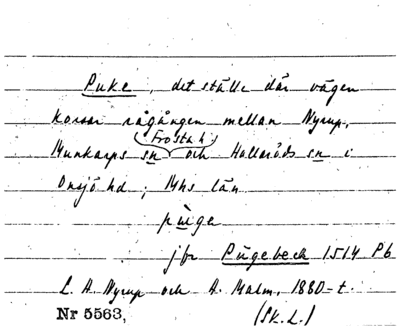 Puke, det ställe där vägen
korsar rågången mellan Nyrup,
(Frosta h.)
Munkarps sn och Hallaröds sn i
Onsjö hd; Mhs län
pùge
jfr Pügebeck 1514 Pb
L. A. Nyrup och A. Malm, 1880-t.
Nr 5563, (Sk. L.)